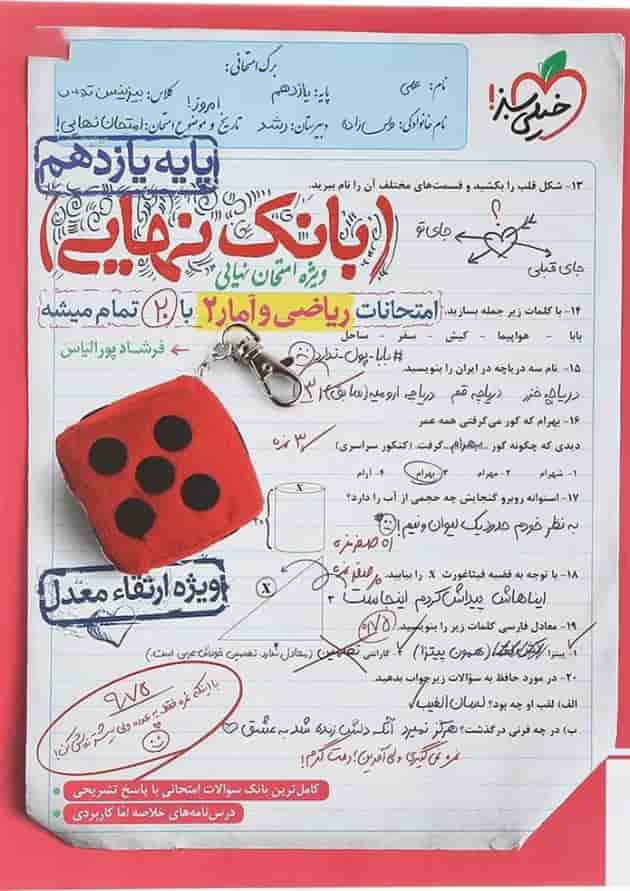 خیلی سبز!
برگ امتحانی:
نام: علی
پایه: یازدهم
کلاس: بیزینس
نام خانوادگی:
دبیرستان: رشد
تاریخ و موضوع امتحان: امروز! امتحان نهایی!
پایه یازدهم
(بانک نهایی)
ویژه امتحان نهایی
امتحانات ریاضی و آمار ۲ با ۲۰ تمام میشه
فرشاد پورالیاس
۱۳- شکل قلب را بکشید و قسمت‌های مختلف آن را نام ببرید.
؟
جای تو
جای قبلی
۱۴- با کلمات زیر جمله بسازید.
بابا - هواپیما - کیش - سفر - ساحل
#بابا-پول-ندارد
۱۵- نام سه دریاچه در ایران را بنویسید.
دریاچه خزر دریاچه قم دریاچه ارومیه (سابق)
۱۶- بهرام که گور می‌گرفتی همه عمر
دیدی که چگونه گور ...بهرام... گرفت. (کنکور سراسری)
۱- شهرام ۲- مهرام ۳- بهرام ۴- آرام
۱۷- استوانه روبرو گنجایش چه حجمی از آب را دارد؟
X
به نظر خودم حدود یک لیوان و نیم!
۱۸- با توجه به قضیه فیثاغورث X را بیابید.
X
۲
ایناهاش پیداش کردم اینجاست
ویژه ارتقاء معدل
۱۹- معادل فارسی کلمات زیر را بنویسید.
۰/۷۵
۱- پیتزا (همون پیتزا) ۲- گارانتی تضمین
۲۰- در مورد حافظ به سؤالات زیر جواب بدهید.
الف) لقب او چه بود؟ لسان الغیب
ب) در چه قرنی درگذشت؟ هرگز نمیرد آنکه دلش زنده شد به عشق
۹/۷۵
کامل‌ترین بانک سوالات امتحانی با پاسخ تشریحی
درس‌نامه‌های خلاصه اما کاربردی